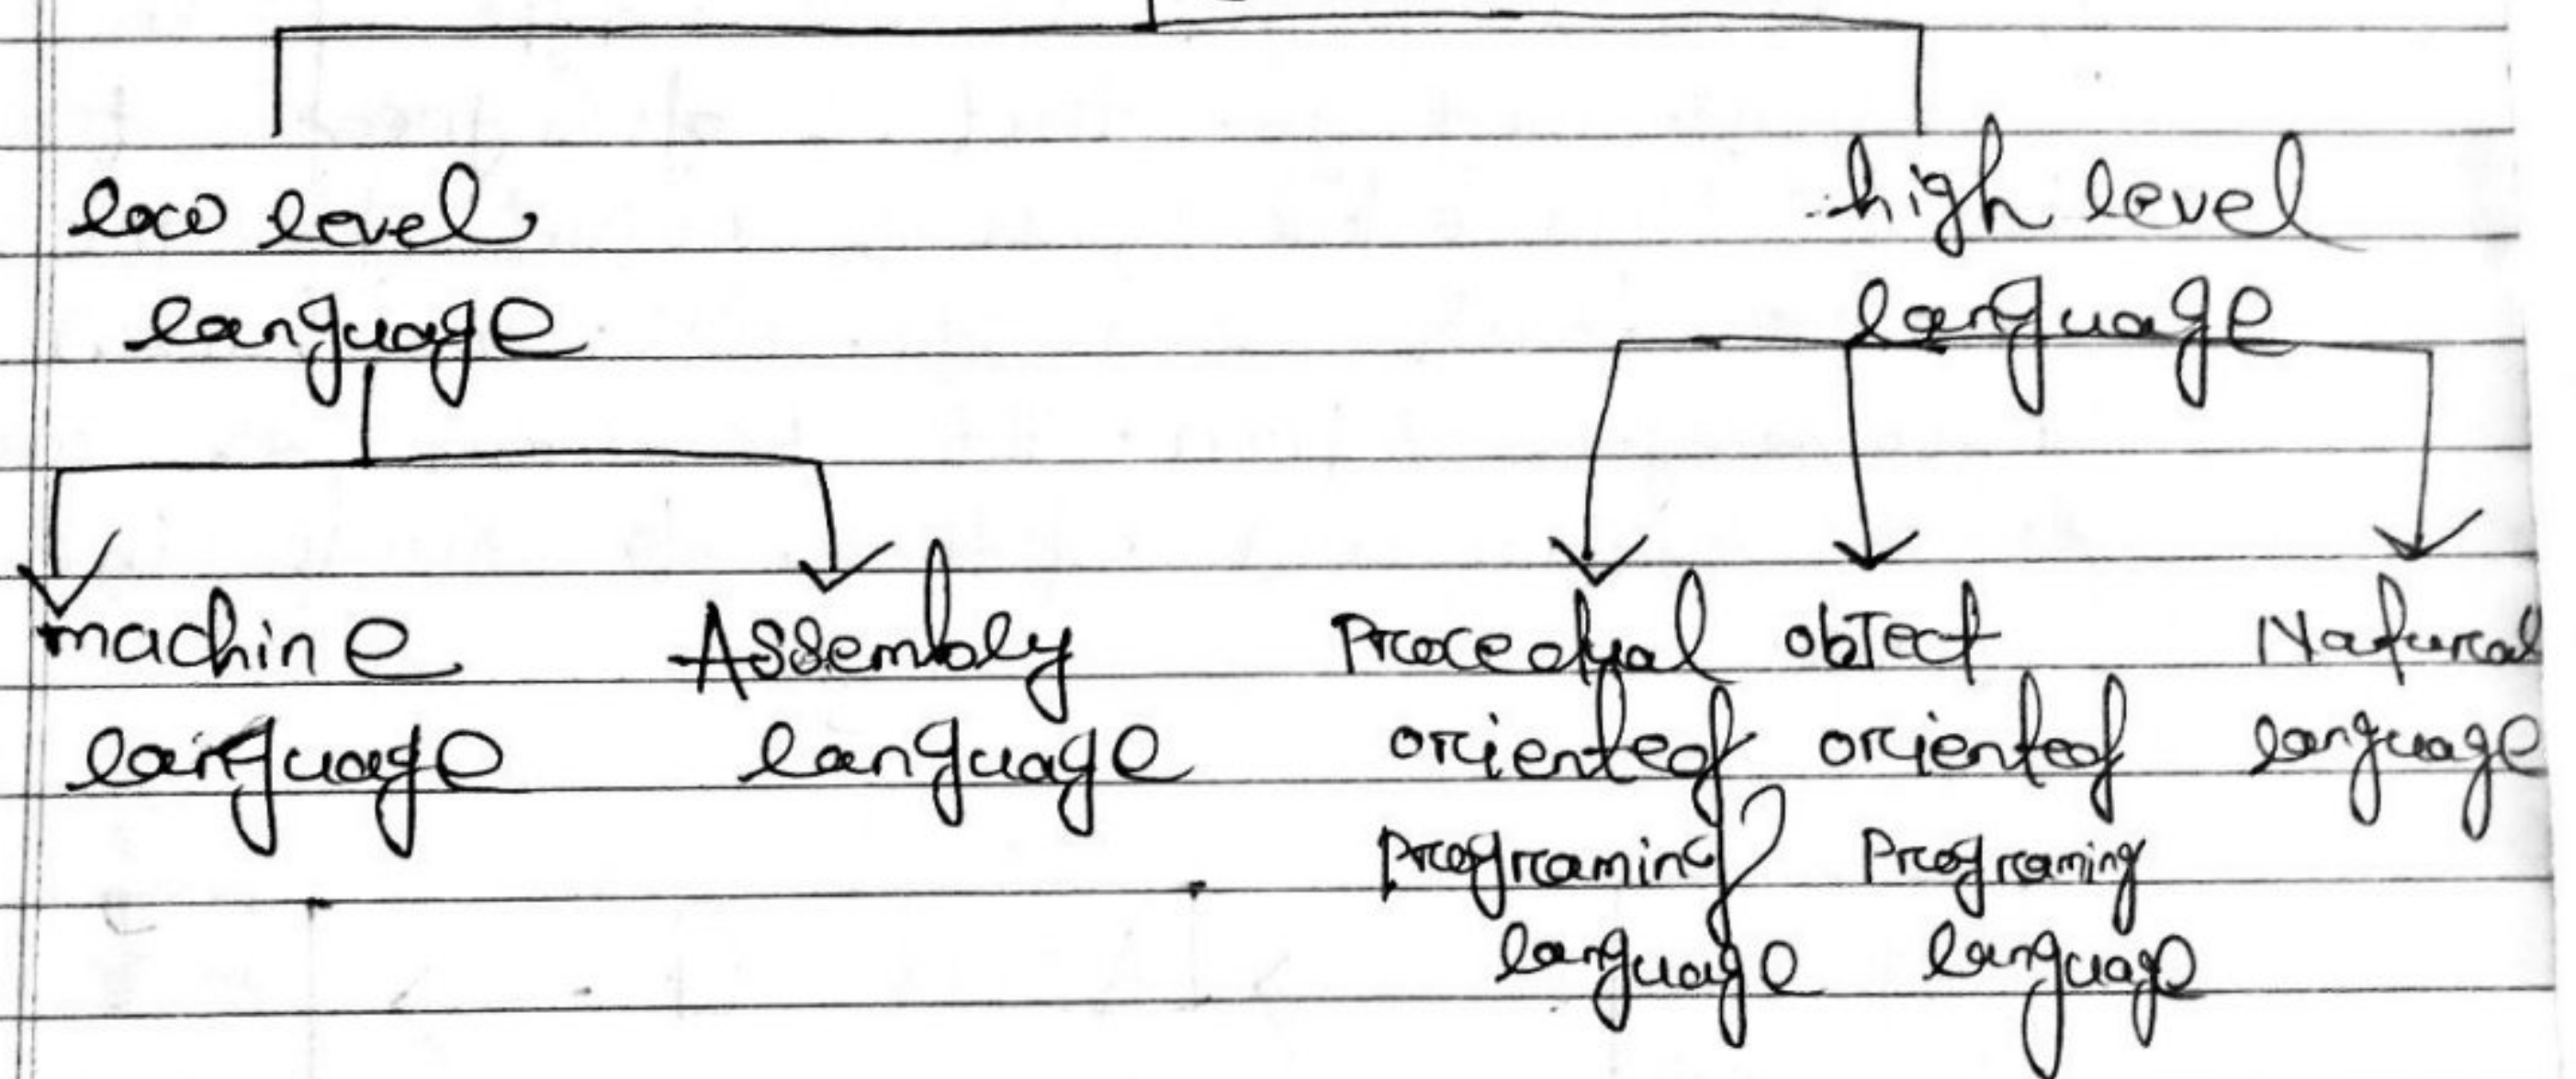 low level
language
high level
language
machine
language
Assembly
language
Procedual
oriented
programing
language
object
oriented
Programing
language
Natural
language